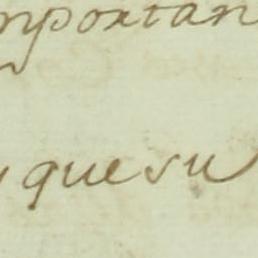 mportan
que su